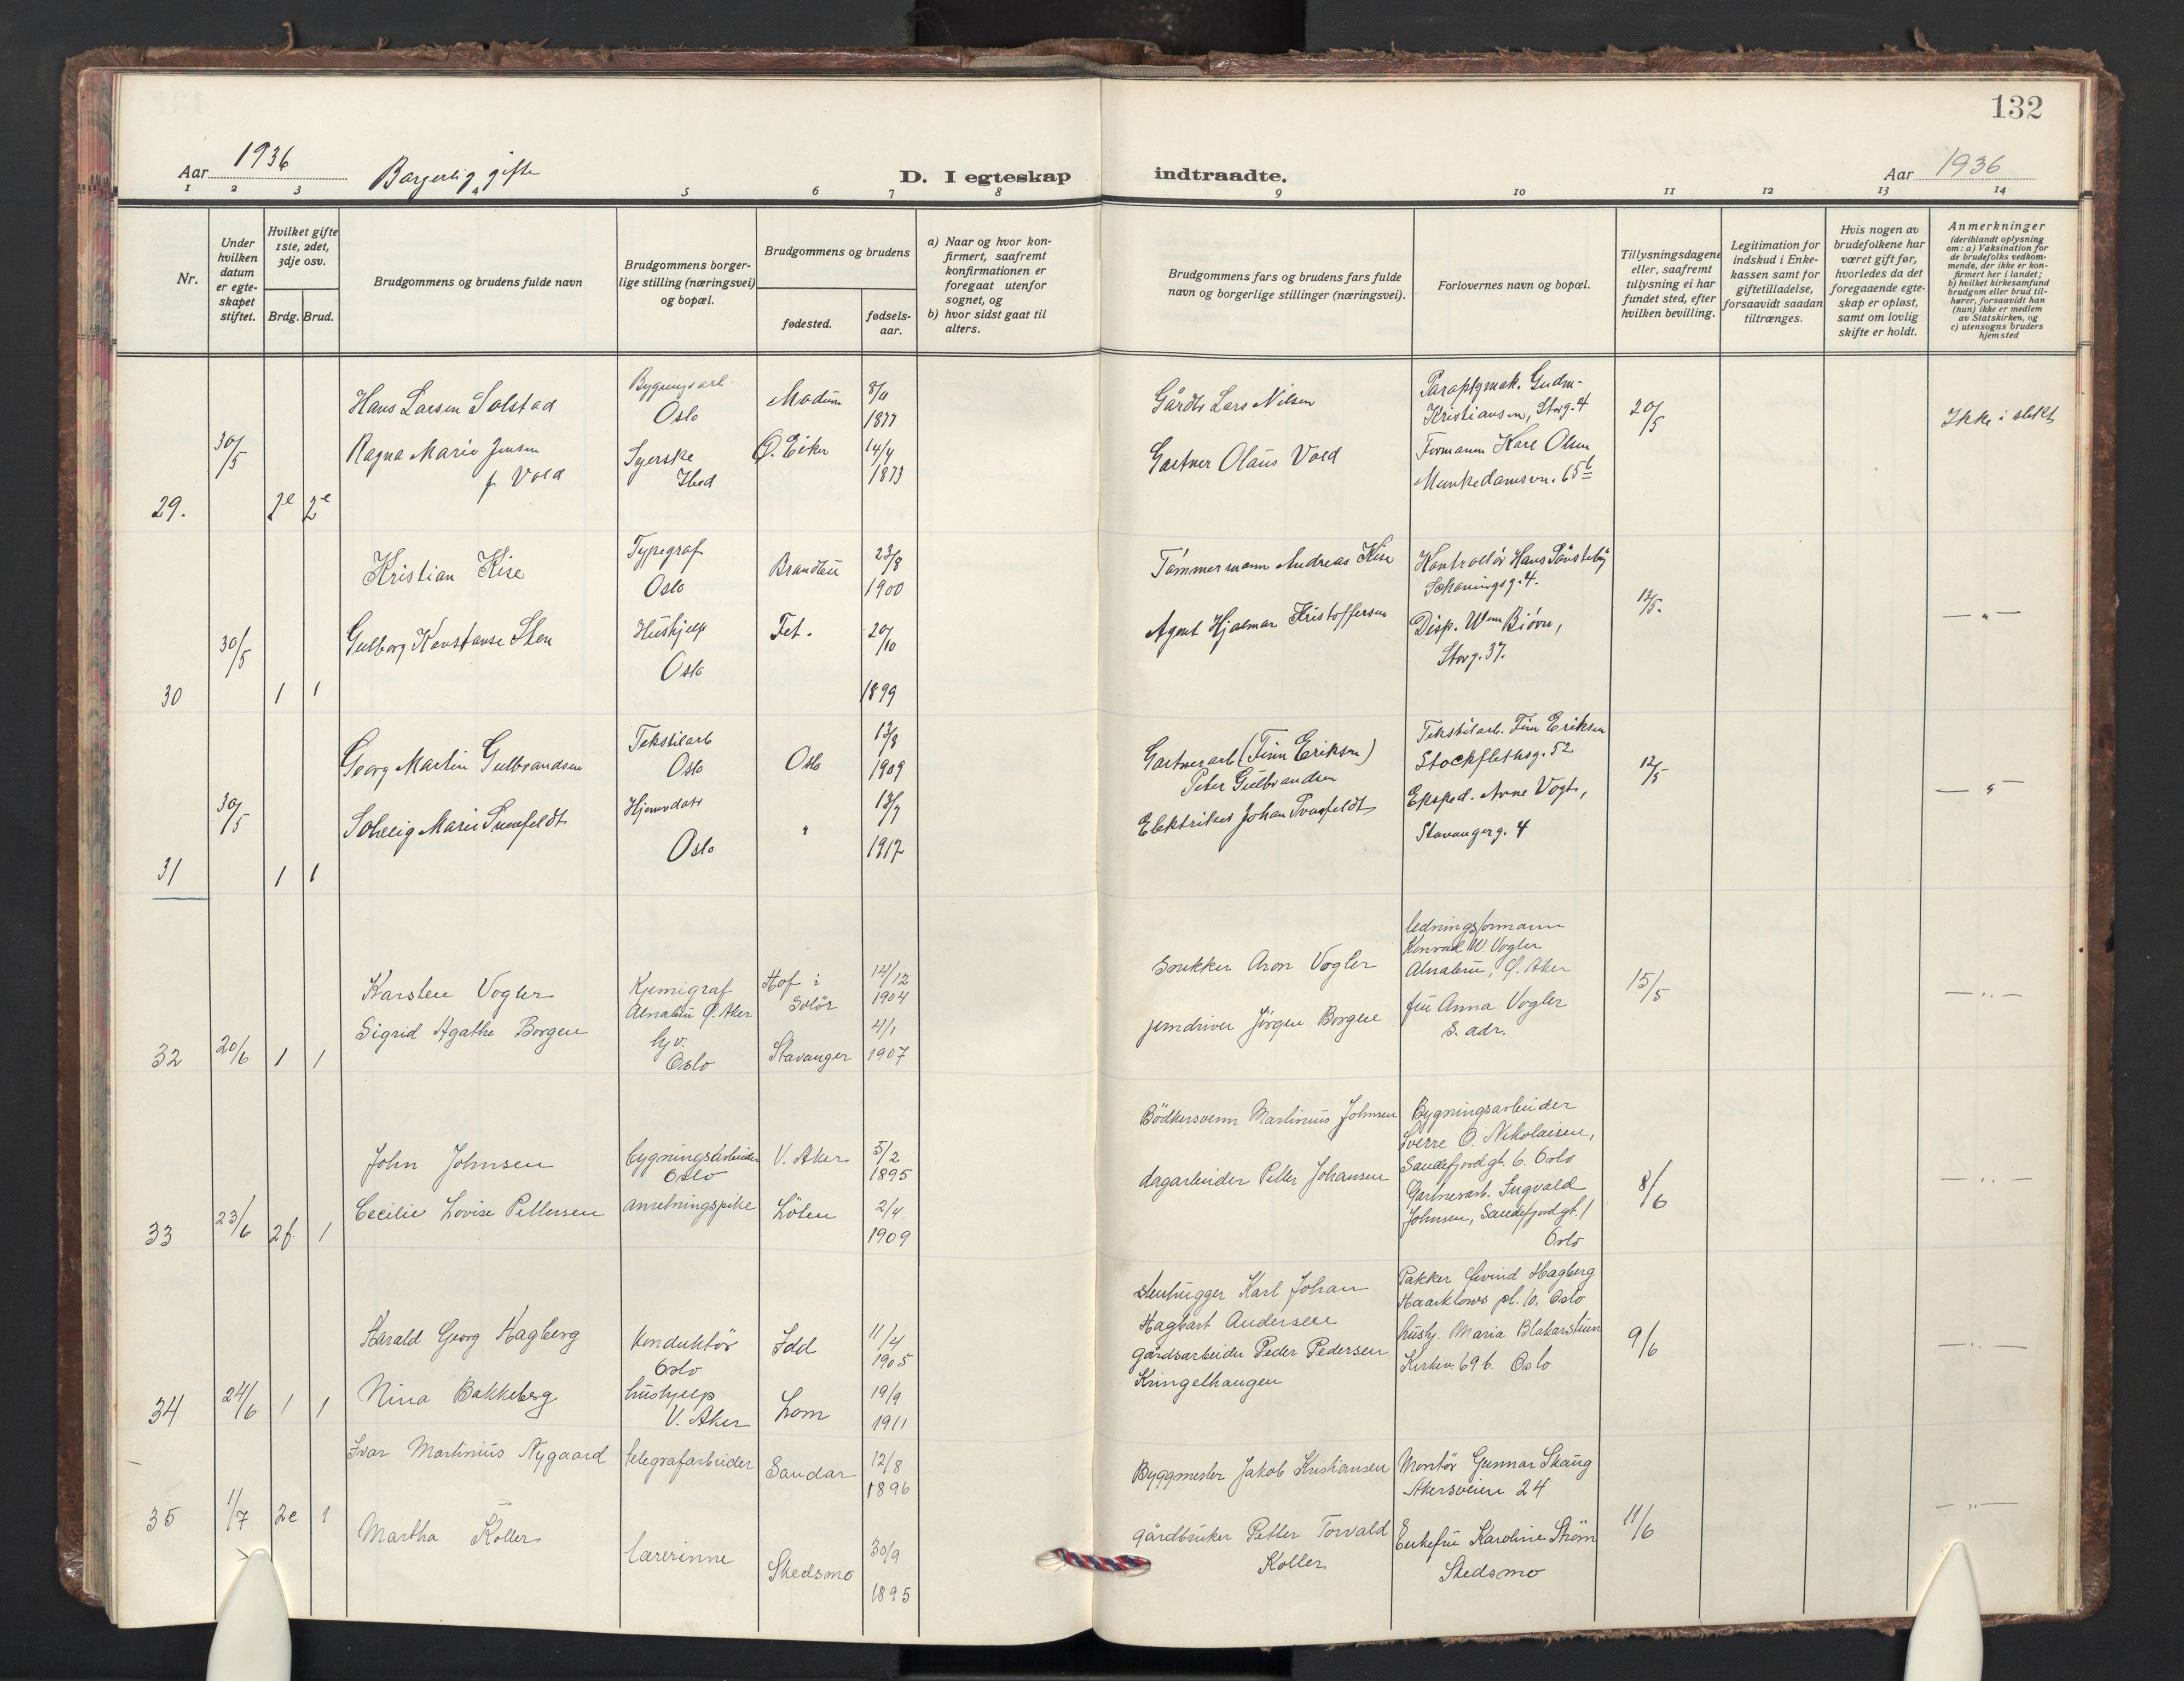 132
Aar 1936 Borgerlig gifte D. I egteskap indtraadte. Aar 1936
1 2 3 4 5 6 7 8 9 10 11 12 13 14
Nr.
Under hvilken datum er egteskapet stiftet.
Hvilket gifte 1ste, 2det, 3dje osv.
Brdg. Brud.
Brudgommens og brudens fulde navn
Brudgommens borgerlige stilling (næringsvei) og bopæl.
Brudgommens og brudens
fødested.
fødselsaar.
a) Naar og hvor konfirmert, saafremt konfirmationen er foregaat utenfor sognet, og
b) hvor sidst gaat til alters.
Brudgommens fars og brudens fars fulde navn og borgerlige stillinger (næringsvei).
Forlovernes navn og bopæl.
Tillysningsdagene eller, saafremt tillysning ei har fundet sted, efter hvilken bevilling.
Legitimation for indskud i Enkekassen samt for giftetilladelse, forsaavidt saadan tiltrænges.
Hvis nogen av brudefolkene har været gift før, hvorledes da det foregaaende egteskap er opløst, samt om lovlig skifte er holdt.
Anmerkninger
(deriblandt oplysning om: a) Vaksination for de brudefolks vedkommende, der ikke er konfirmert her i landet; b) hvilket kirkesamfund brudgom eller brud tilhører, forsaavidt han (hun) ikke er medlem av Statskirken, og c) utensogns bruders hjemsted
29. 30/5 2e 2e
Hans Larsen Solstad
Bygningsarb. Oslo
Modum 8/11 1877
Ragna Marie Jensen f. Vold
Syerske Ibid
Ø. Eiker 14/4 1873
Gårdbr Lars Nilsen
Gartner Olaus Vold
Paraplymak. Gudm. Kristiansen, Storg. 4
Formann Karl Olsen
Munkedamsvn. 65b
20/5
Ikke i slekt
30 30/5 1 1
Kristian Kise
Typegraf Oslo
Brandbu 23/8 1900
Gulborg Konstanse Sten
Hushjelp Oslo
Fet. 20/10 1899
Tømmermann Andreas Kise
Agent Hjalmar Kristoffersen
Kontrollør Hans Sønsteby
Schøningsg. 4.
Disp. Wm Biørn,
Storg. 37.
12/5.
— " —
31 30/5 1 1
Georg Martin Gulbrandsen
Tekstilarb Oslo
Oslo 13/8 1909
Solveig Marie Svanfeldt
Hjemvdatr Oslo
" 13/7 1917
Gartnerarb (Finn Eriksen)
Peter Gulbrandsen
Elektriker Johan Svanfeldt
Tekstilarb. Finn Eriksen
Stockflethsg. 52
Eksped. Arne Vogt,
Stavangerg. 4
12/5
— " —
32 20/6 1 1
Karsten Vogler
Kjemigraf
Alnabru Ø. Aker
Hof i Solør 14/12 1904
Sigrid Agathe Borgen
hjv. Oslo
Stavanger 4/1 1907
Snekker Aron Vogler
jerndriver Jørgen Borgen
ledningsformann
Konrad W Vogler
Alnabru, Ø. Aker
fru Anna Vogler
s. adr.
15/5
— " —
33 23/6 2f. 1
John Johnsen
bygningsarbeider Oslo
V. Aker 5/2 1895
Cecilie Lovise Pettersen
anretningspike
Löten 2/4 1909
Bödkersvenn Martinius Johnsen
dagarbeider Petter Johansen
Bygningsarbeider
Sverre O. Nikolaisen,
Sandefjordgt. 6. Oslo
Gartnerarb. Ingvald
Johnsen, Sandefjordgt. 1
Oslo
8/6
— " —
34 24/6 1 1
Harald Georg Hagberg
konduktör Oslo
Idd 11/4 1905
Nina Bakkeberg
hushjelp V. Aker
Lom 19/9 1911
stenhugger Karl Johan
Hagbart Andersen
gårdsarbeider Peder Pedersen
Kringelhaugen
Pakker Øivind Hagberg
Haarklous pl. 10. Oslo
hushj. Maria Blakarstuen
Kirkev. 69 b. Oslo
9/6
— " —
35 1/7 2e 1
Ivar Martinius Nygaard
telegrafarbeider
Sandar 12/8 1896
Martha Koller
lærerinne
Skedsmo 30/9 1895
Byggmester Jakob Kristiansen
gårdbruker Petter Torvald
Koller
Montör Gunnar Skaug
Akersveien 24
Enkefru Karoline Ström
Skedsmo
11/6
— " —